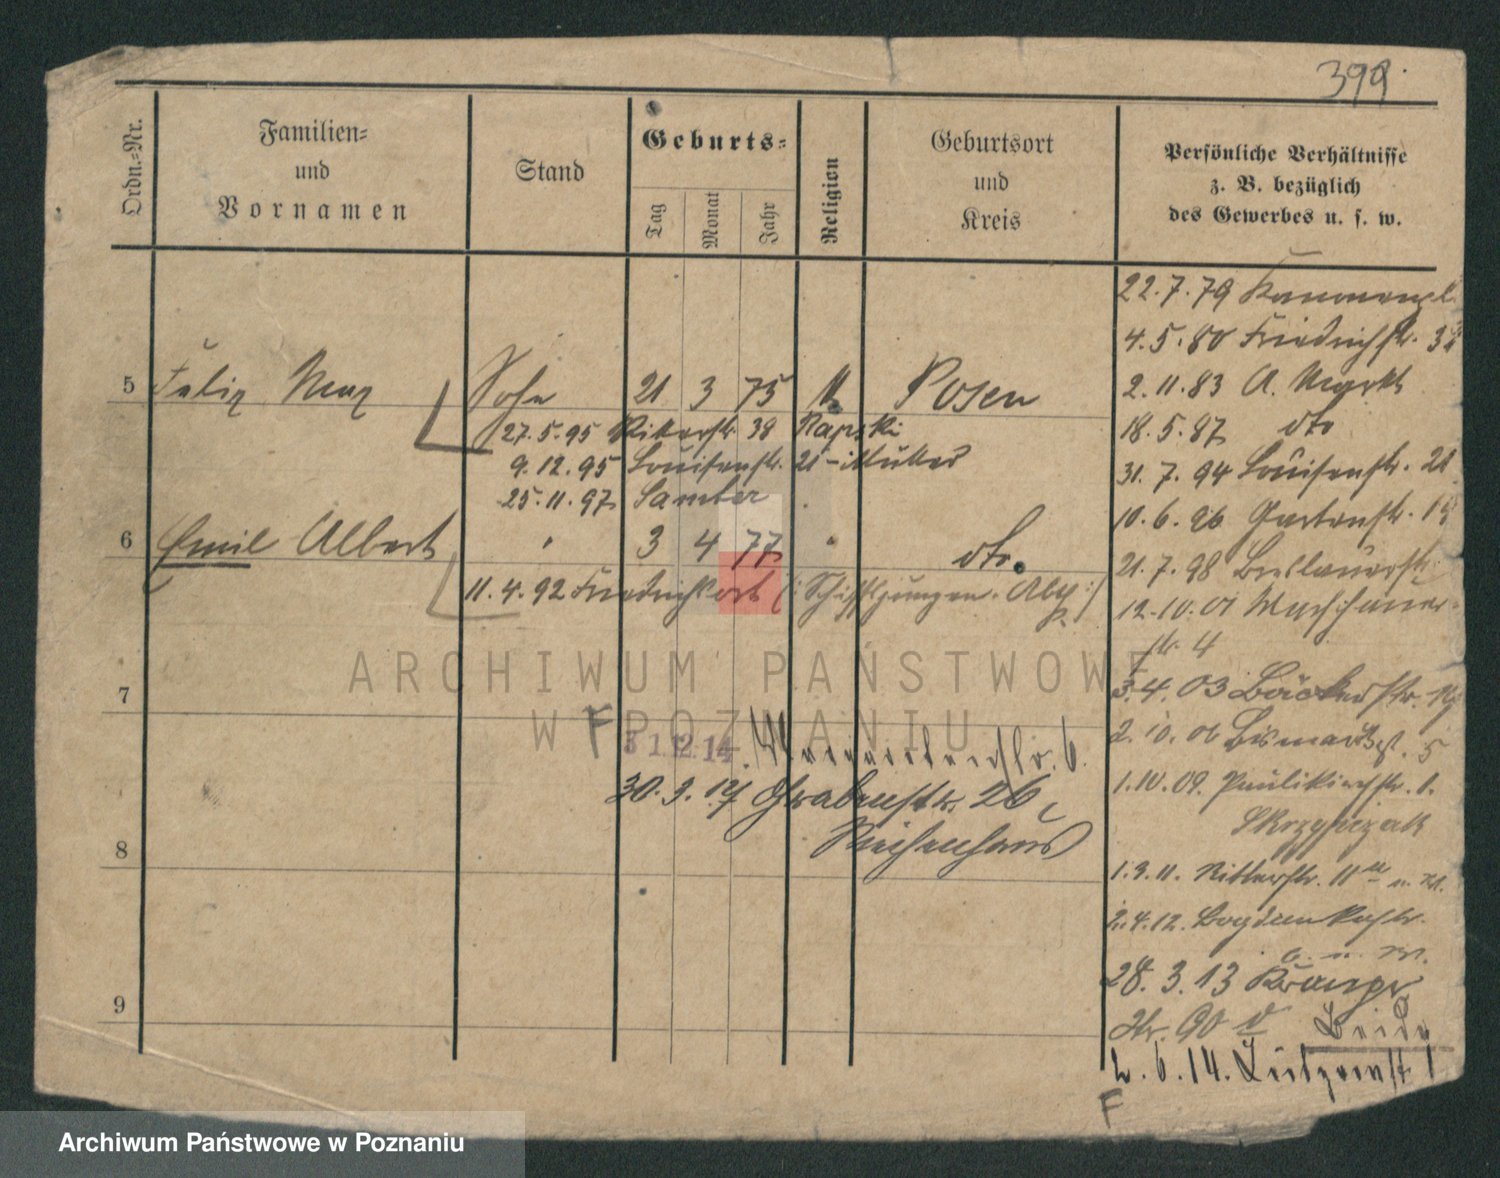 399.
Ordn.=Nr.
Familien=
und
Vornamen
Stand
Geburts=
Tag
Monat
Jahr
Religion
Geburtsort
und
Kreis
Persönliche Verhältnisse
z. B. bezüglich
des Gewerbes u. s. w.
5 Felix Max Sohn 21 3 75 Posen
27.5.95 Ritterstr. 38 Rapski
9.12.95 Louisenstr. 21 - Mutter
25.11.97 Samter
6 Emil Albert " 3 4 77 " dto.
11.4.92 Friedrichsort (: Schiffsjungen-Abth. :)
7
F 31.12.14. 6.
30.3.17 Grabenstr. 26,
8
9
22.7.79 Kanonenpl.
4.5.80 Friedrichstr.
2.11.83 A. Markt
18.5.87 dto
31.7.94 Louisenstr. 21
10.6.96 Gartenstr.
21.7.98 Breslauerstr.
12.10.01
str. 4
3.4.03 Bäckerstr.
2.10.06 Bismarckst. 5
1.10.09. Paulikirchstr. 1.
Skrzypczak
1.3.11. Ritterstr. 11
2.4.12. Bogdankastr.
6. u. W.
28.3.13
Str. 90
2.6.14.
F
ARCHIWUM PAŃSTWOWE
W POZNANIU
Archiwum Państwowe w Poznaniu